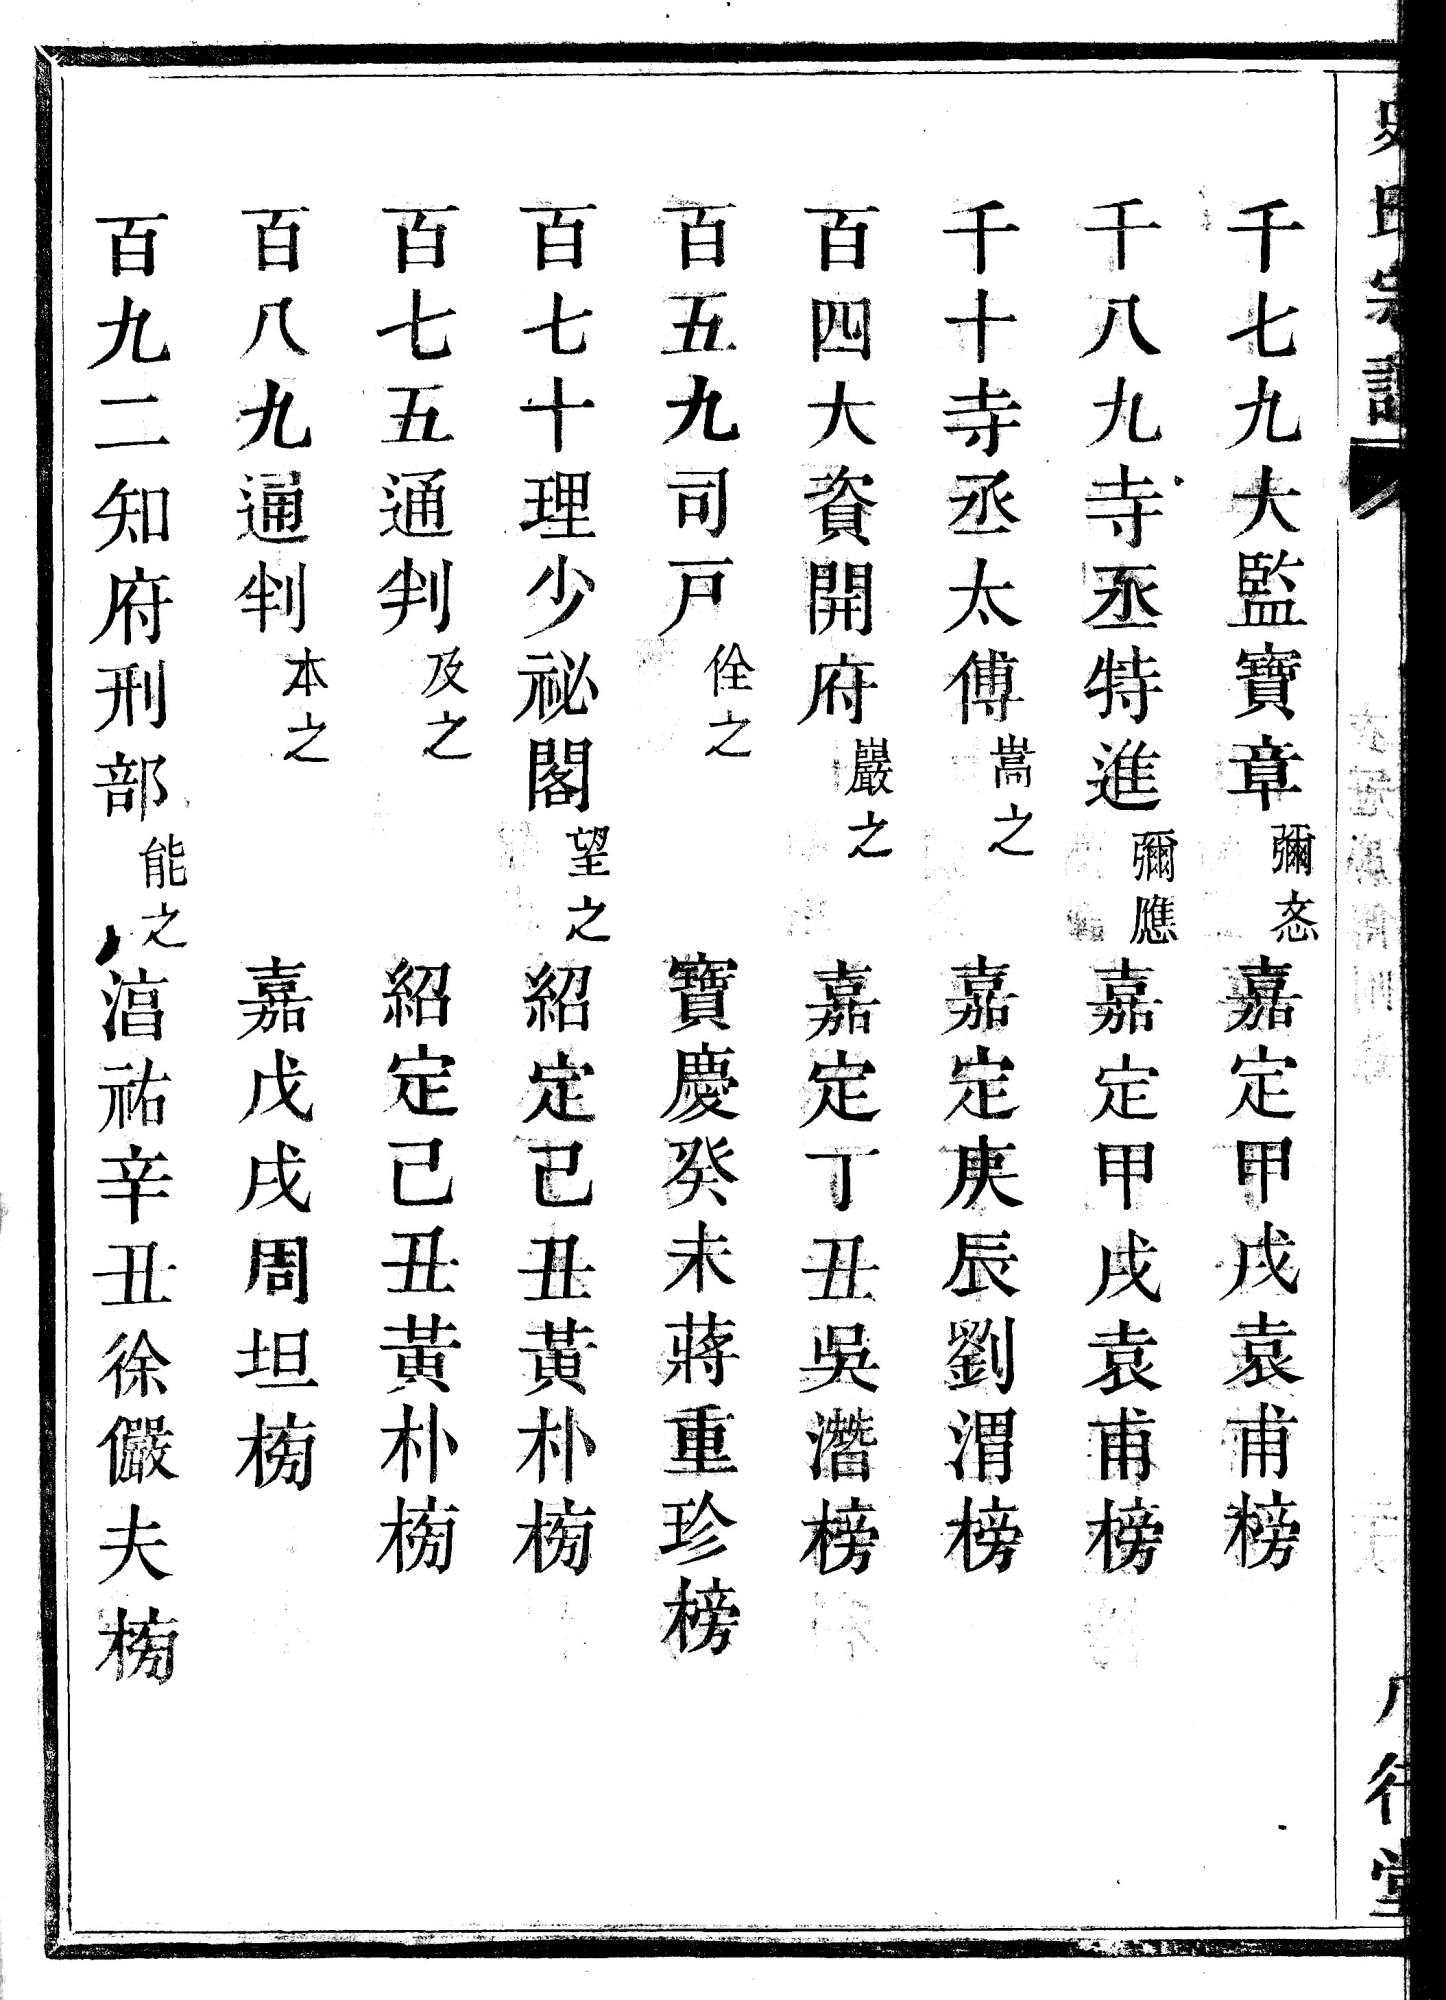 史氏宗譜
八行堂
千七九大監寶章彌忞嘉定甲戌袁甫榜
千八九寺丞特進彌應嘉定甲戌袁甫榜
千十寺丞太傅嵩之嘉定庚辰劉渭榜
百四大資開府巖之嘉定丁丑吳潛榜
百五九司戸佺之寶慶癸未蔣重珍榜
百七十理少祕閣望之紹定己丑黃朴榜
百七五通判及之紹定己丑黃朴榜
百八九通判本之嘉戊戌周坦榜
百九二知府刑部能之湻祐辛丑徐儼夫榜